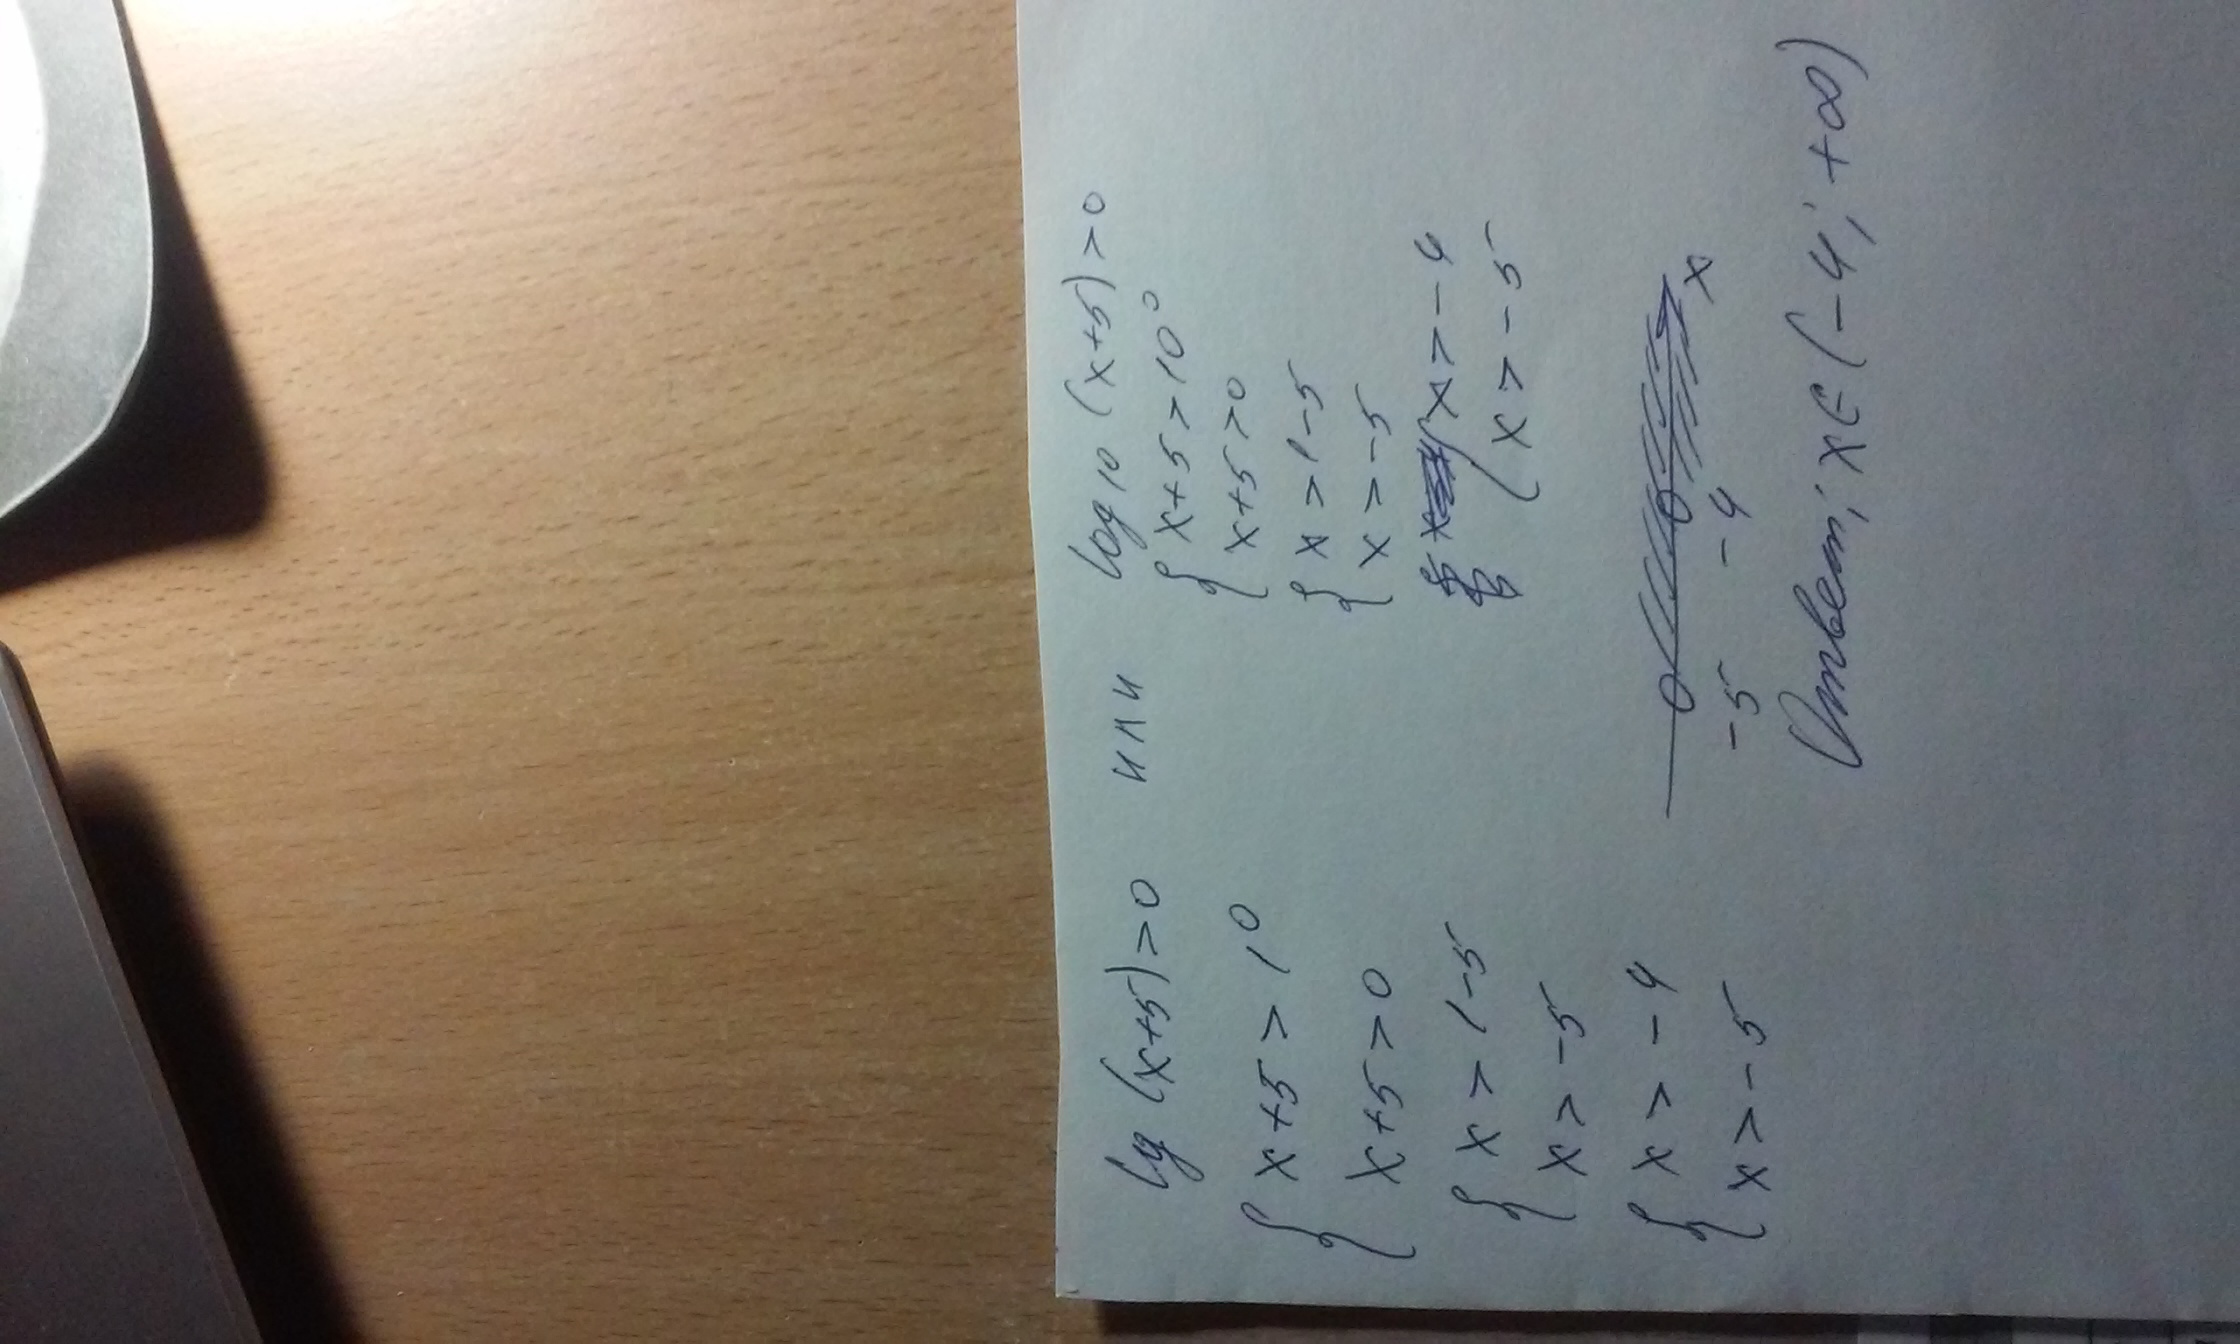 lg (x+5)>0 или log₁₀ (x+5)>0
{ x+5 > 1⁰
x+5 > 0
{ x > 1-5
x > -5
{ x > -4
x > -5
{ x+5 > 10⁰
x+5 > 0
{ x > 1-5
x > -5
{ x > -4
x > -5
-5 -4 x
Ответ; x∈(-4; +∞)